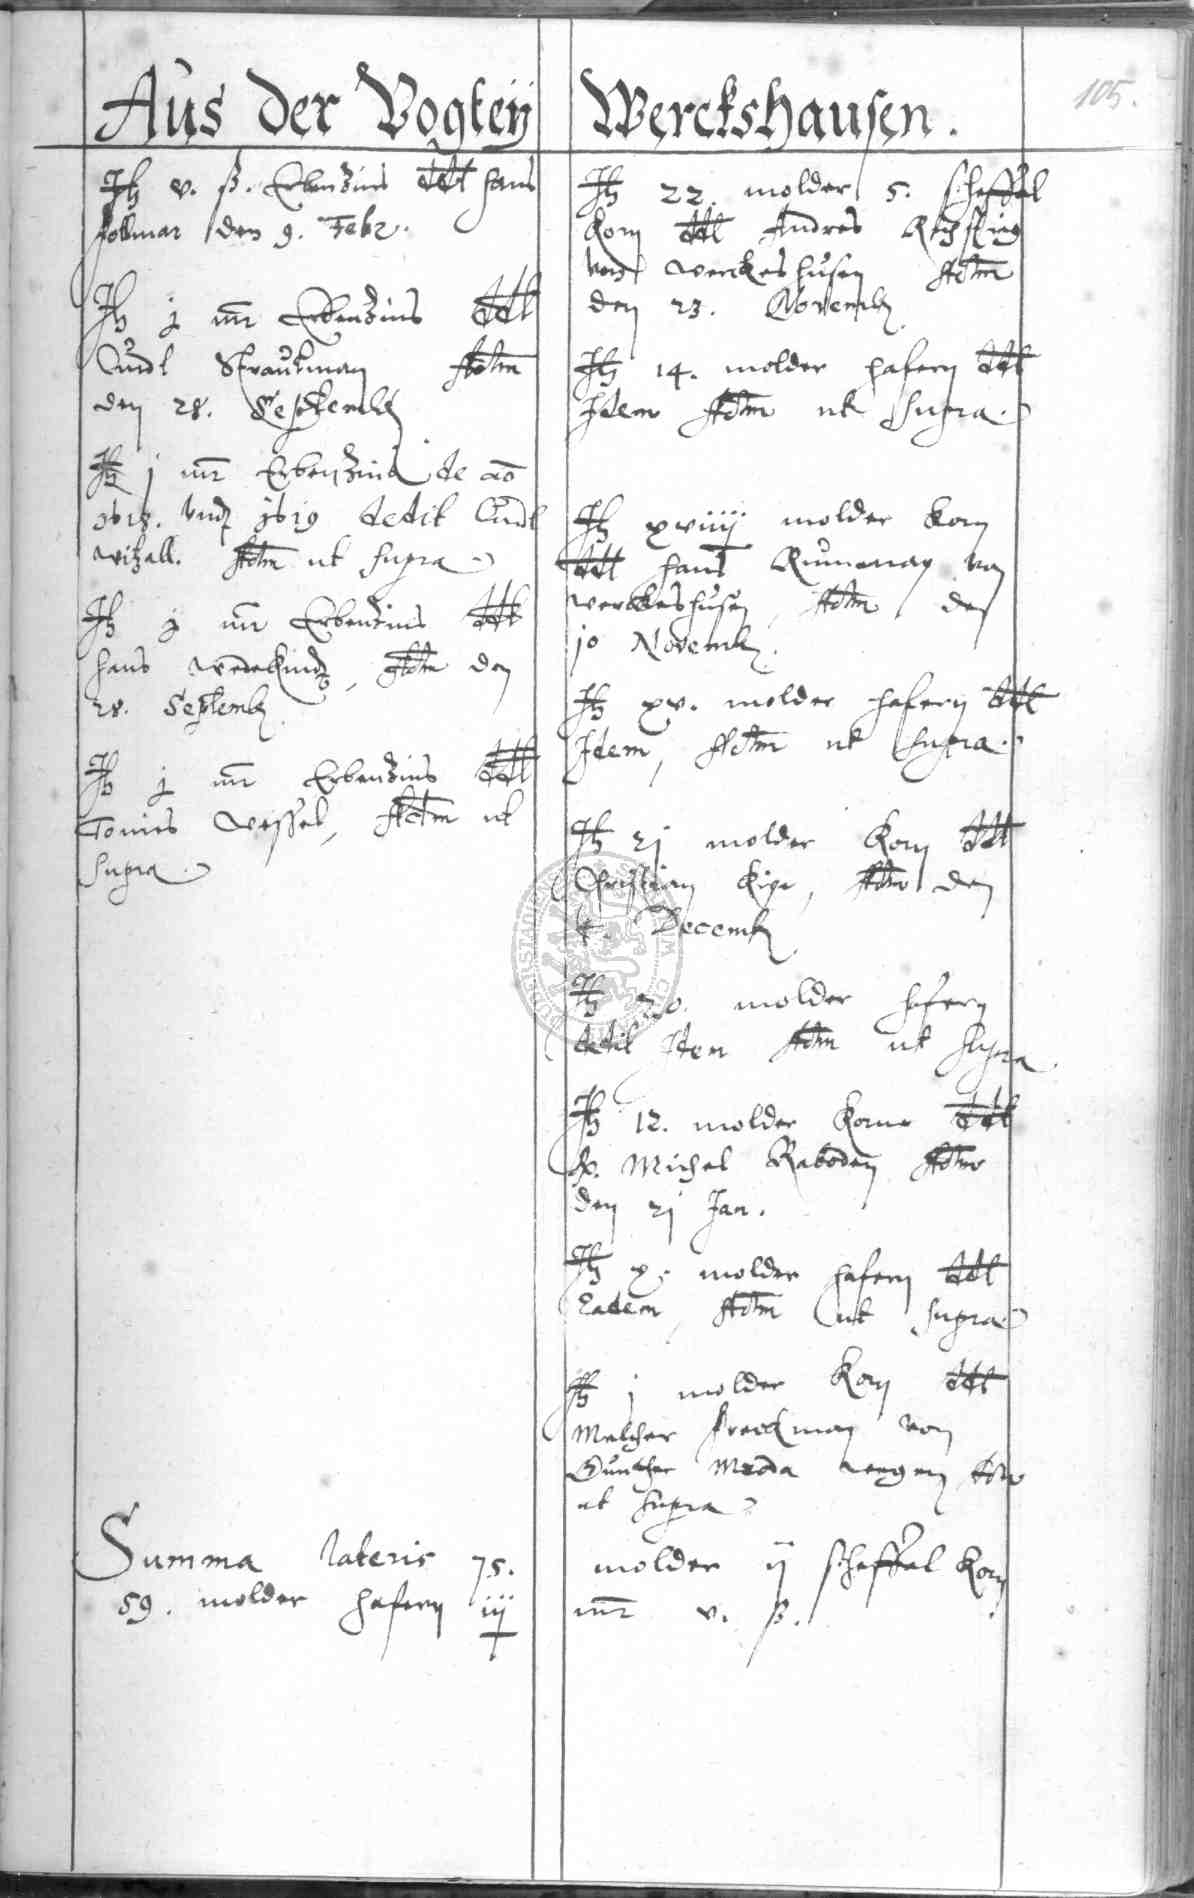 105.
Aus der Vogteÿ Werckshausen.
It v. ß. Erbenzins dedit Hans
Follmar den 9. Febr.
It j mr Erbenzins dedit
Curdt Strautman Actum
den 28. Septemb
It j mr Erbenzins de ao
1618. vnd 1619 dedit Curdt
Witzall. Actum ut supra
It j mr Erbenzins dedit
Hans Wedekindt, Actum den
28. Septemb
It j mr Erbenzins dedit
Tonies Wessel, Actum ut
supra
It 22. molder 5. scheffel
Korn dedit Andres
von Werckeshusen Actum
den 23. Novemb
It 14. molder hafern dedit
Idem Actum ut supra.
It xviiij molder Korn
dedit Hans Rumman von
Werckeshusen, Actum den
10 Novemb.
It xv. molder hafern dedit
Idem, Actum ut supra.
It 21 molder Korn dedit
Christian Kipe, Actum den
4. Decemb
It 20. molder hafern
dedit Idem Actum ut supra
It 12. molder Korn dedit
Michel Raboden Actum
den 21 Jan.
It x. molder hafern dedit
Eadem, Actum ut supra
It j molder Korn dedit
Melcher Freckman von
Gunther wegen Actum
ut supra
Summa lateris 75. molder ij scheffel Korn
59. molder hafern iij mr v. ß.